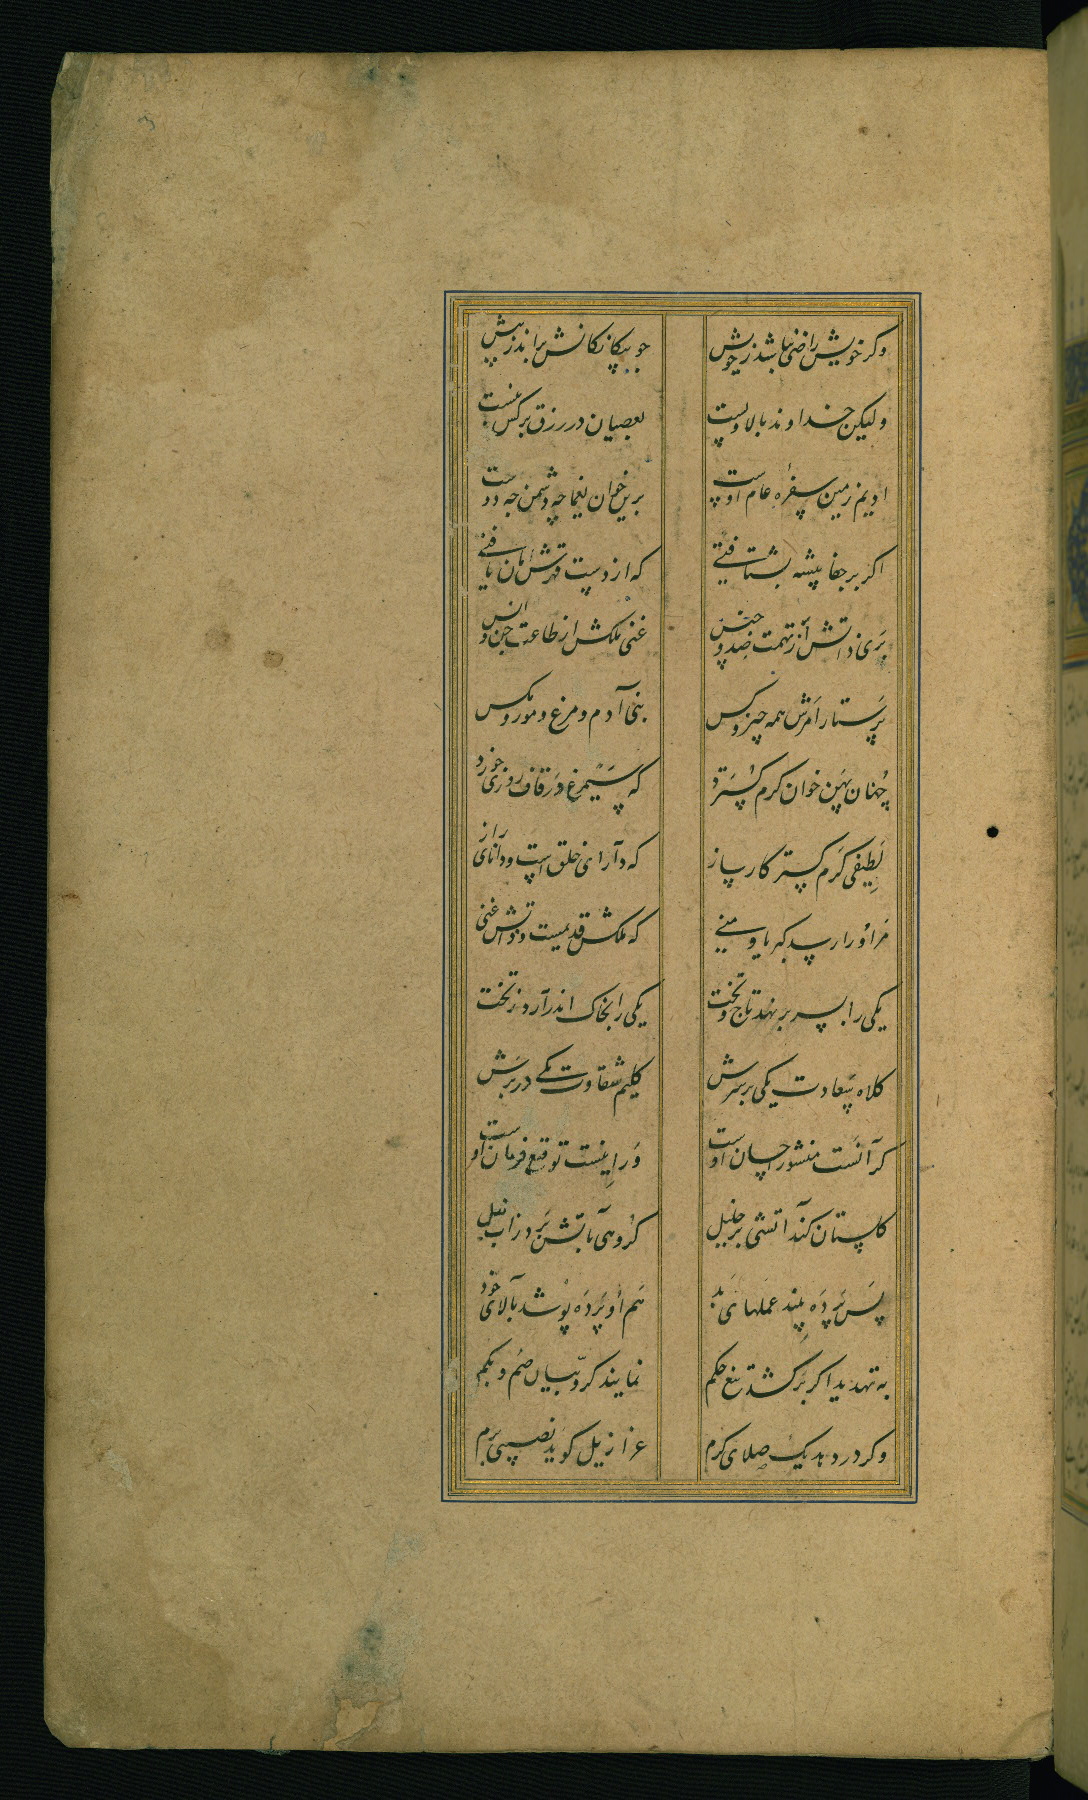 وکر خویش راضی نباشد ز خویش چو بیکانکانش براند ز پیش
ولیکن خداوند بالا و پست بعصیان در رزق بر کس نبست
ادیم زمین سفرهٔ عام اوست برین خوان یغما چه دشمن چه دوست
اکر بر جفا پیشه بشتافتی که از دست قهرش امان یافتی
بری ذاتش از تهمت ضد و جنس غنی ملکش از طاعت جن و انس
پرستار امرش همه چیز و کس بنی آدم و مرغ و مور و مکس
چنان پهن خوان کرم کسترد که سیمرغ در قاف روزی خورد
لطیفی کرم کستر کارساز که دارای خلق است و دانای راز
مر او را رسد کبریا و منی که ملکش قدیمست و ذاتش غنی
یکی را بسر بر نهد تاج و تخت یکی را بخاک اندر آرد ز تخت
کلاه سعادت یکی بر سرش کلیم شقاوت یکی در برش
کر آنست منشور احسان اوست ور اینست توقیع فرمان اوست
کلستان کند آتشی بر خلیل کروهی بآتش برد ز آب نیل
پس پرده بیند عملهای بد هم او پرده پوشد بآلای خود
به تهدید اکر بر کشد تیغ حکم نمایند کروبیان صم و بکم
وکر در دهد یک صلای کرم عزازیل کوید نصیبی برم